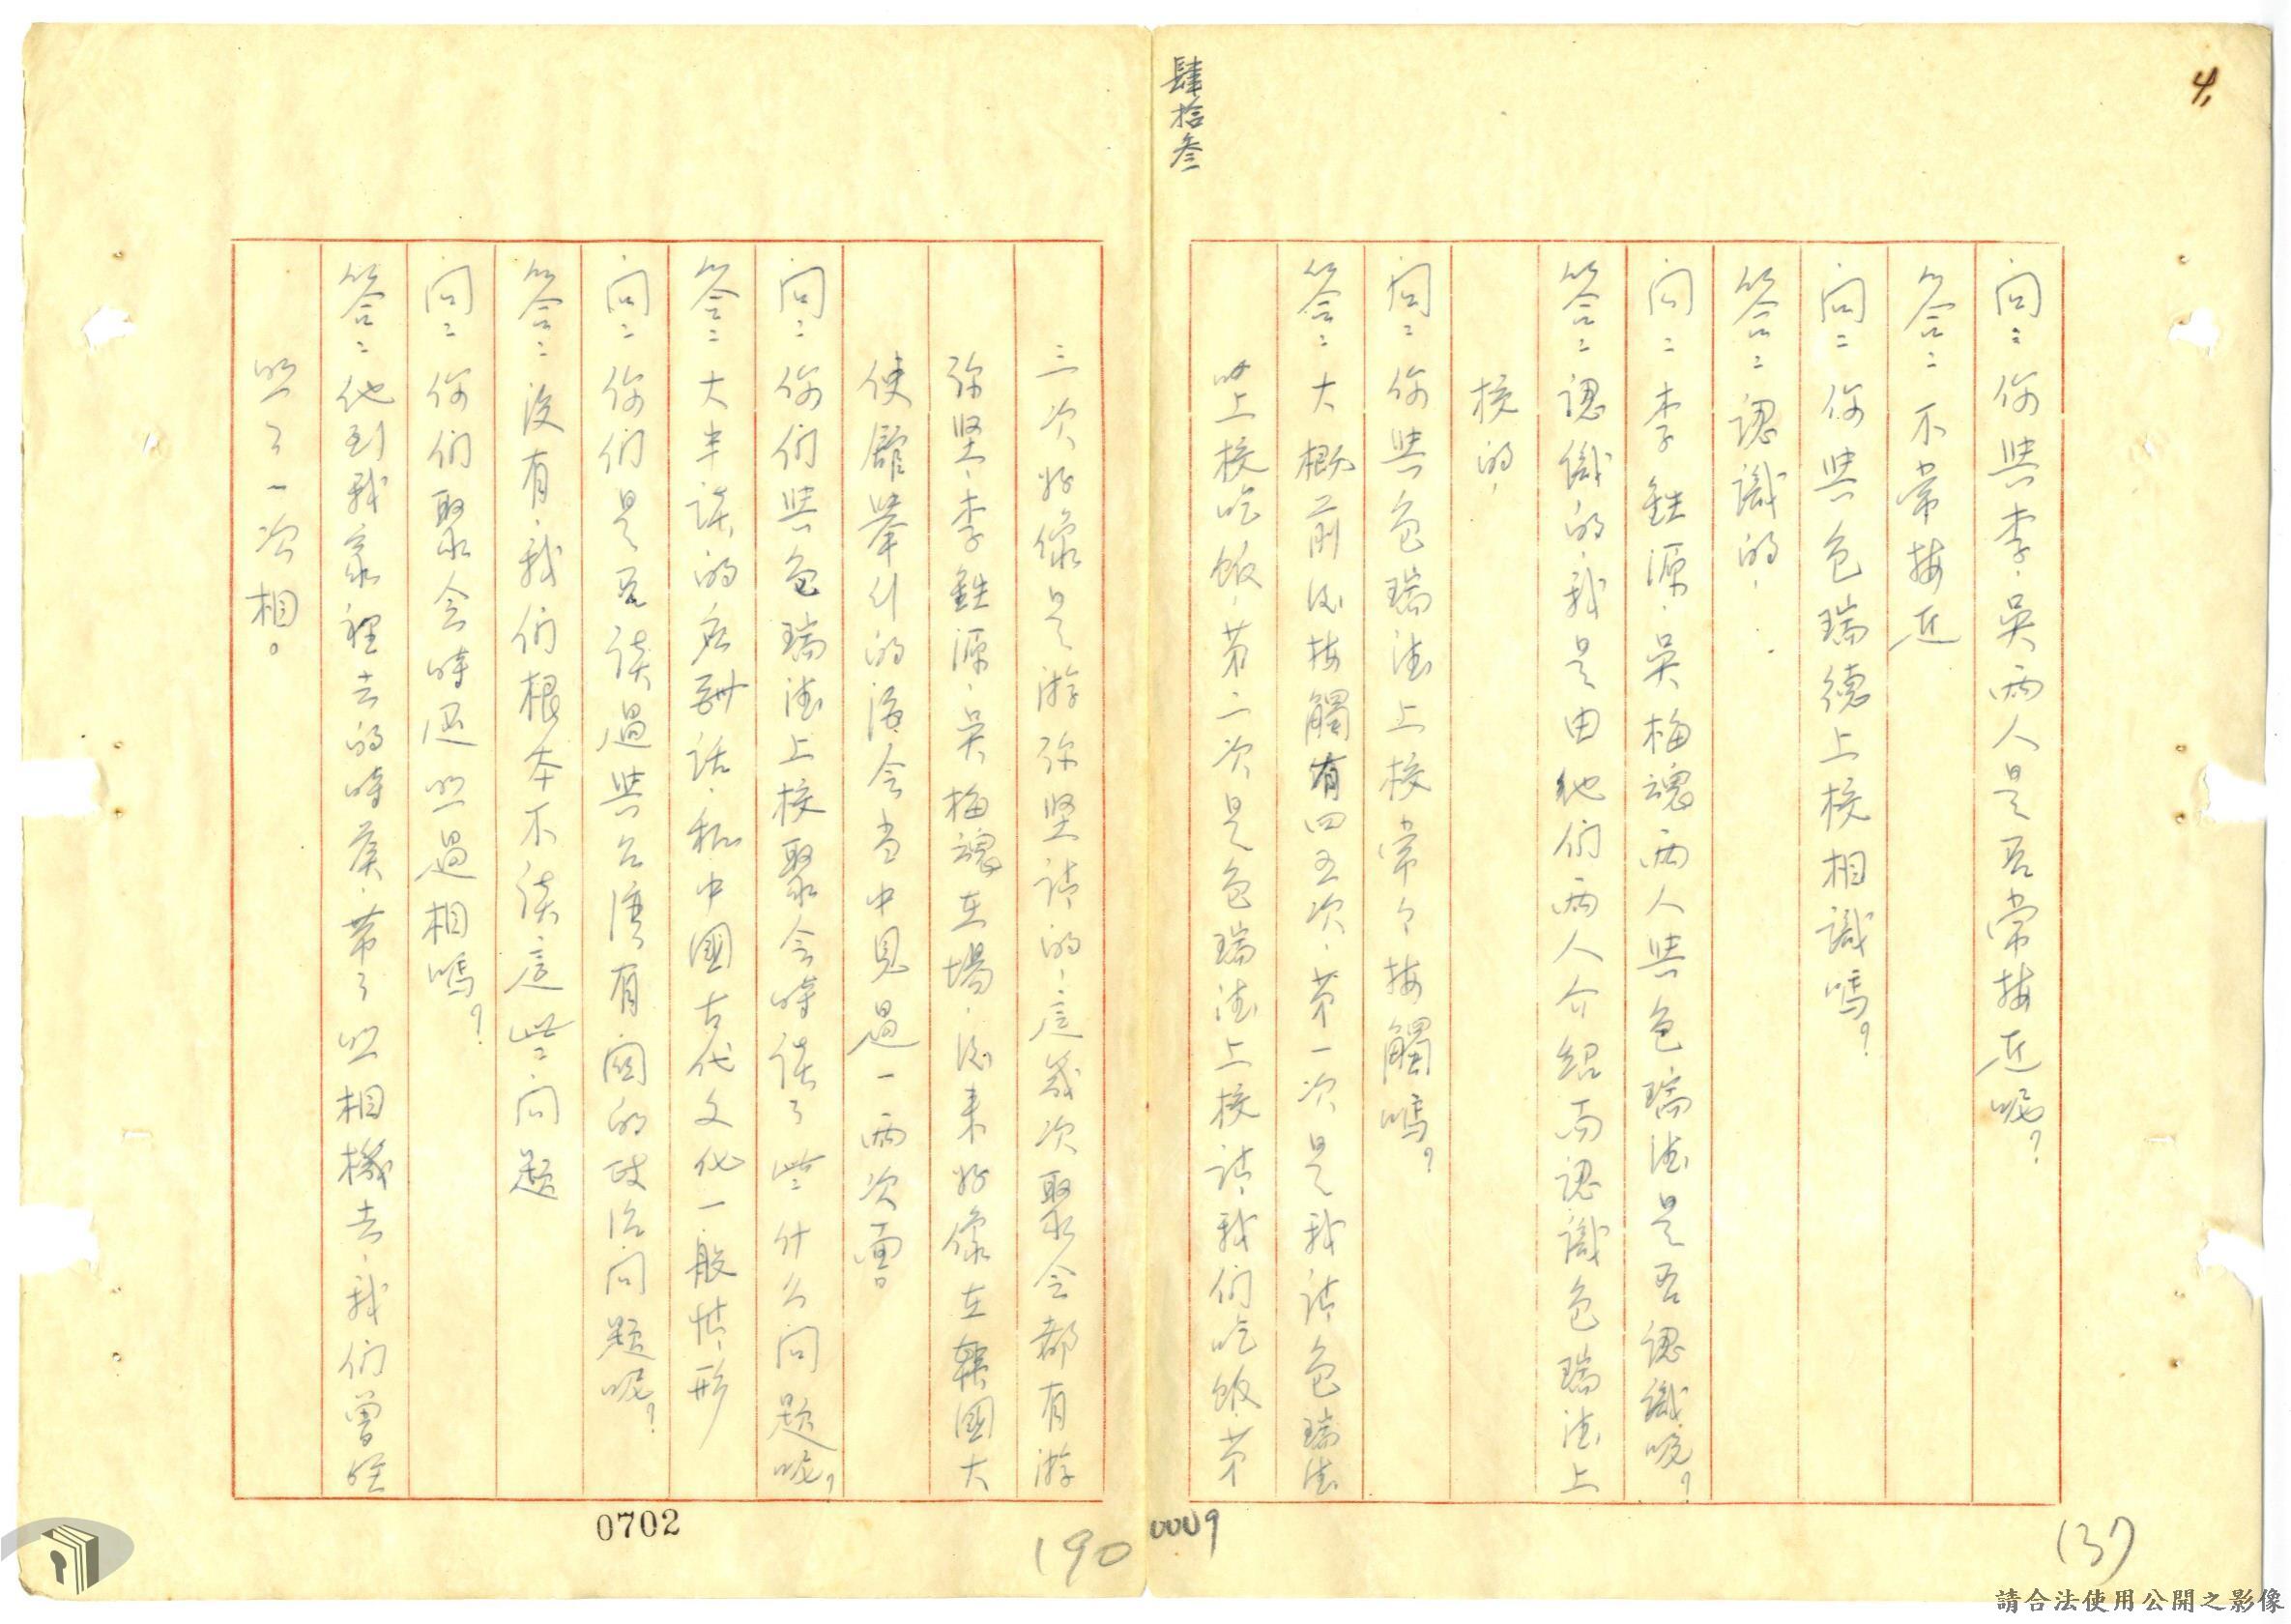 4,
肆拾叁
問：你與李、吳兩人是否常接近呢？
答：不常接近
問：你與包瑞德上校相識嗎？
答：認識的、
問：李鉎源、吳梅魂兩人與包瑞德是否認識呢？
答：認識的、我是由他們兩人介紹而認識包瑞德上
校的、
問：你與包瑞德上校常々接觸嗎？
答：大概前後接觸有四五次、第一次是我請包瑞德
上校吃飯、第二次是包瑞德上校請我們吃飯、第
三次好像是游弥坚請的、這幾次聚会都有游
弥坚、李鉎源、吳梅魂在場、後来好像在韓國大
使館舉行的酒会当中見過一兩次面。
問：你們與包瑞德上校聚会時談了些什么問題呢？
答：大半談的應酬話、和中國古代文化一般情形
問：你們是否談過與台湾有関的政治問題呢？
答：没有、我們根本不談這些問題
問：你們聚会時还照過相嗎？
答：他到我家裡去的時候、帶了照相機去、我們曾經
照了一次相。
0702
190
0009
(37)
請合法使用公開之影像